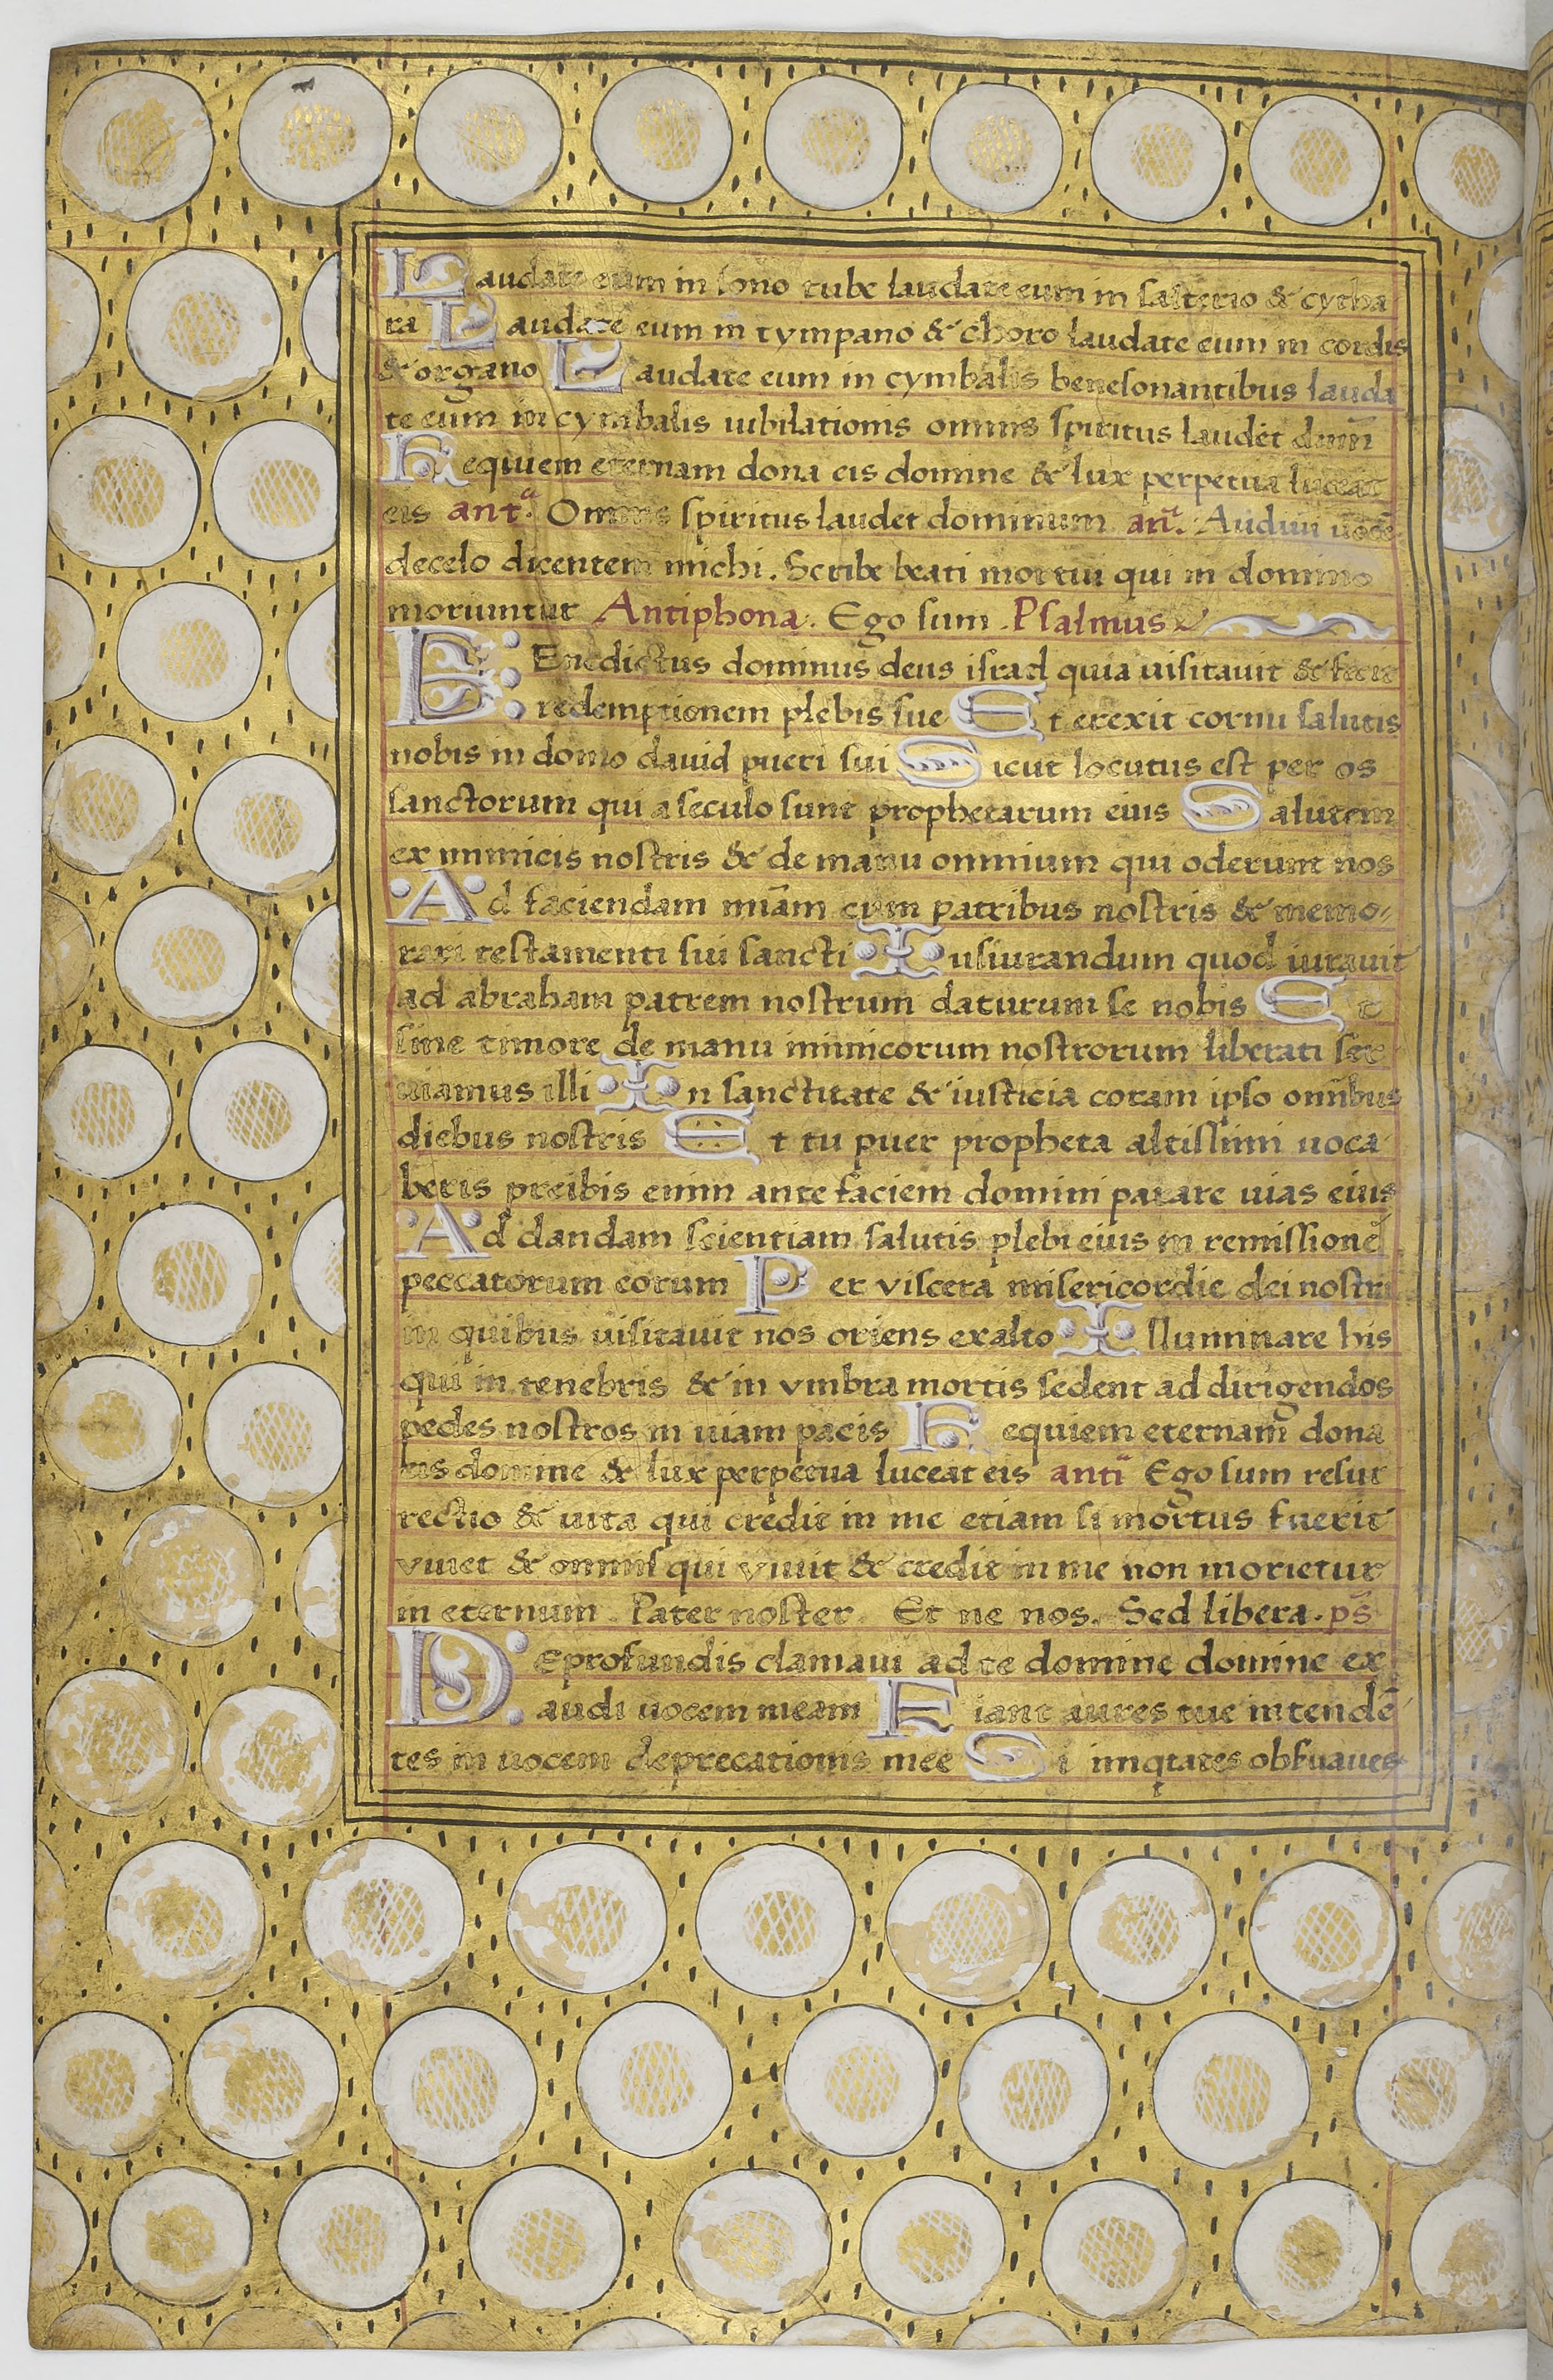 Laudate eum in sono tube laudate eum in salterio & cytha
ra Laudate eum in tympano & choro laudate eum in cordis
& organo Laudate eum in cymbalis benesonantibus lauda
te eum in cymbalis iubilationis omnis spiritus laudet dnm̄
Requiem eternam dona eis domine & lux perpetua luceat
eis antᵃ. Omnis spiritus laudet dominum an̄. Audiui uocē
de celo dicentem michi. Scribe beati mortui qui in domino
moriuntur Antiphona. Ego sum. Psalmus
BEnedictus dominus deus israel quia uisitauit & fecit
redemptionem plebis sue Et erexit cornu salutis
nobis in domo dauid pueri sui Sicut locutus est per os
sanctorum qui a seculo sunt prophetarum eius Salutem
ex inimicis nostris & de manu omnium qui oderunt nos
Ad faciendam miām cum patribus nostris & memo-
rari testamenti sui sancti Iusiurandum quod iurauit
ad abraham patrem nostrum daturum se nobis Et
sine timore de manu inimicorum nostrorum liberati ser
uiamus illi In sanctitate & iusticia coram ipso omībus
diebus nostris Et tu puer propheta altissimi uoca
beris preibis enim ante faciem domini parare uias eius
Ad dandam scientiam salutis plebi eius in remissionē
peccatorum eorum Per viscera misericordie dei nostri
in quibus uisitauit nos oriens exalto Illuminare his
qui in tenebris & in vmbra mortis sedent ad dirigendos
pedes nostros in uiam pacis Requiem eternam dona
eis domine & lux perpetua luceat eis antī Ego sum resur
rectio & uita qui credit in me etiam si mortus fuerit
viuet & omnis qui viuit & credit in me non morietur
in eternum. Pater noster. Et ne nos. Sed libera. ps̄
DEprofundis clamaui ad te domine domine ex
audi uocem meam Fiant aures tue intendē
tes in uocem deprecationis mee Si iniqtates obsuaues